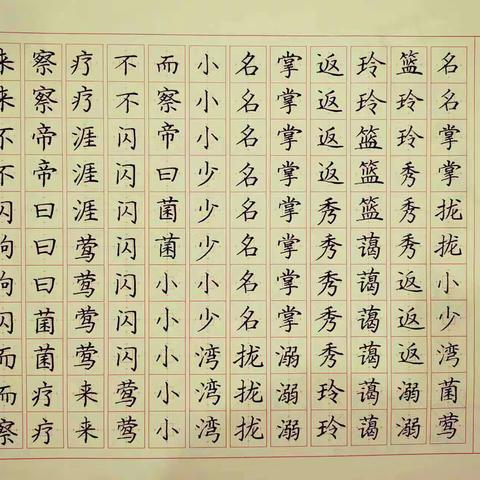 名名掌掌拢拢小少湾菌莺
篮玲玲秀秀秀返返返溺溺
玲玲篮篮篮蔼蔼蔼蔼蔼蔼
返返返返秀秀秀秀秀玲玲
掌掌掌掌掌掌掌掌溺溺溺
名名名名名名名名拢拢拢
小小小少少少小少湾湾湾
而察帝曰菌菌小小小小小
不不闪闪闪闪闪闪闪莺莺
疗疗涯涯涯莺莺莺莺来来
察察帝帝曰曰曰菌菌疗疗
来来不不闪闪而而察